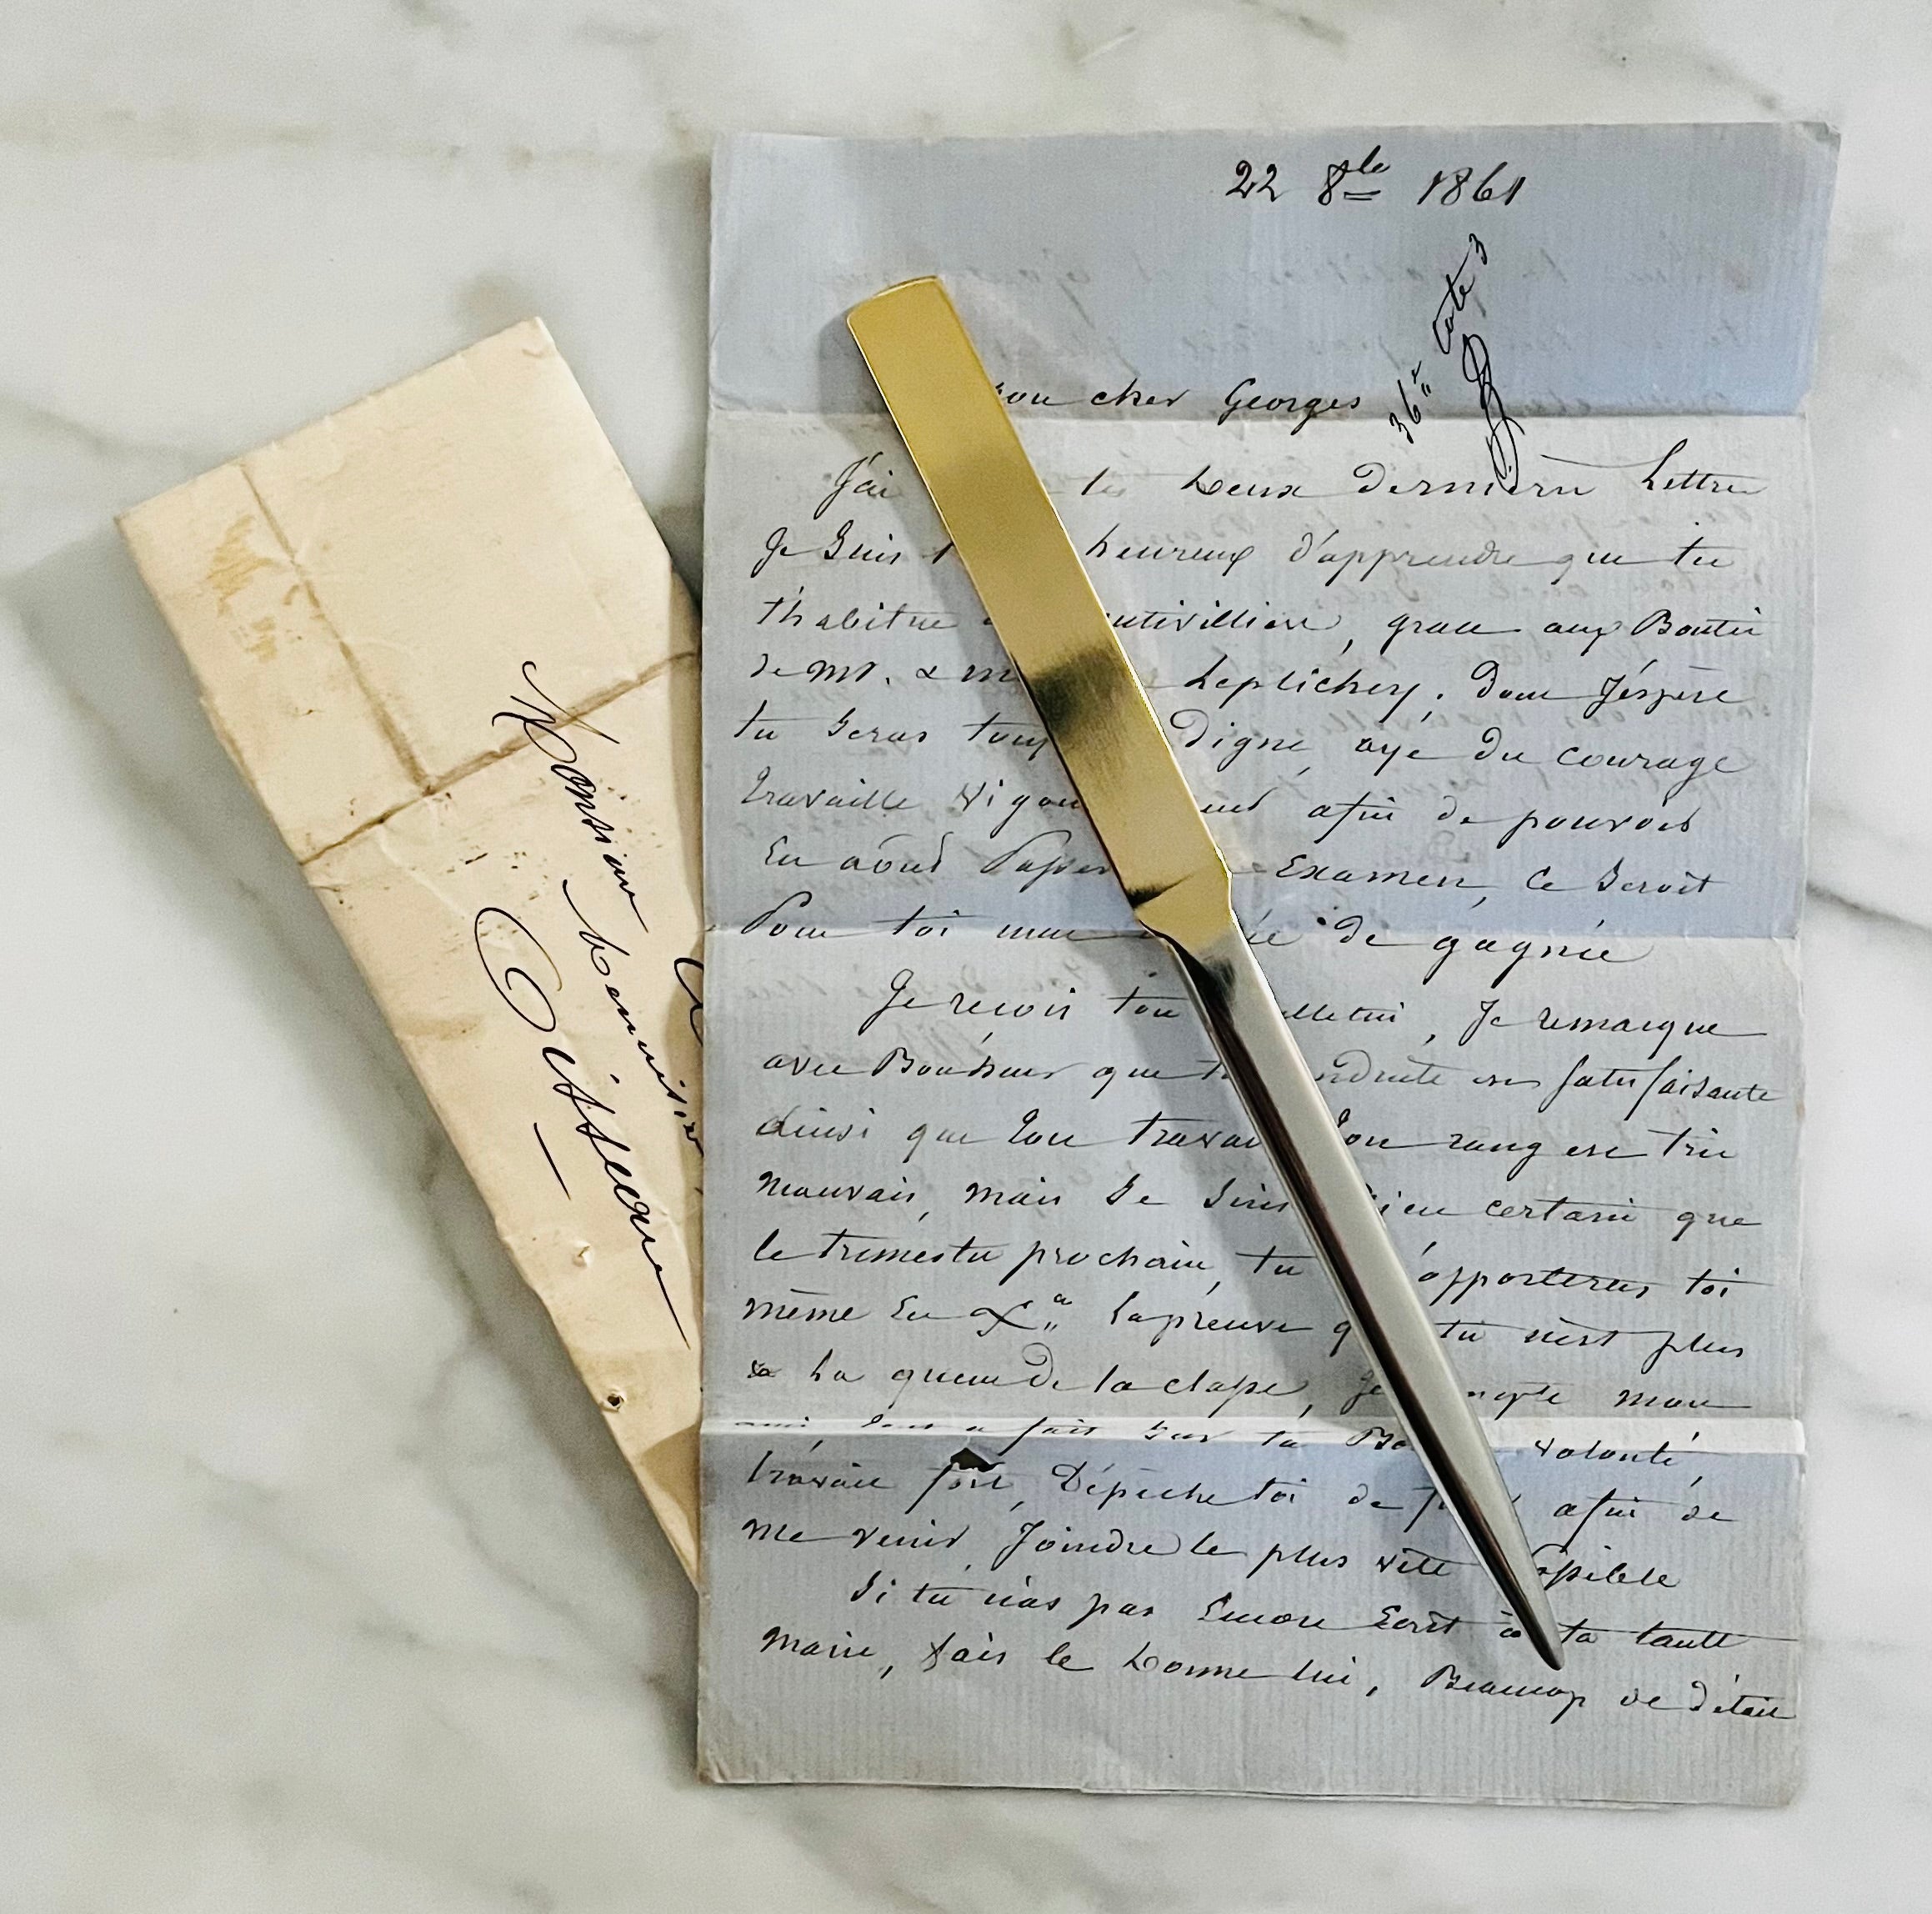 22 8bre 1861
36e Cote 3
mon cher Georges
J'ai les deux dernière Lettre
Je Suis heureux d'apprendre que tu
t'habitue ntivilliere, grace aux Bontés
de Mr. & m Leplichey. Dont J'éspère
tu Seras touj Digne, aye du courage
Travaille Vigou ment afin de pouvoir
En aôut Passer Examen, Ce Seroit
Pour toi une ée de gagnée
Je recois ton lletin, Je remarque
avec Bonheur que ta nduite est satisfaisante
ainsi que ton travail ton rang est très
mauvais, mais Je Suis bien certain que
le trimestre prochain, tu m'apporteras toi
même En Xbre la preuve que tu n'est plus
a La queue de la classe, Je compte mon
ami, tout a fait Sur ta Bonne volonté,
travaille fort, Dépeche toi de afin de
me venir Joindre le plus vite possible
Si tu n'as pas Encore Ecrit à ta tante
Marie, fais le Donne lui, Beaucoup de détail
Monsieur